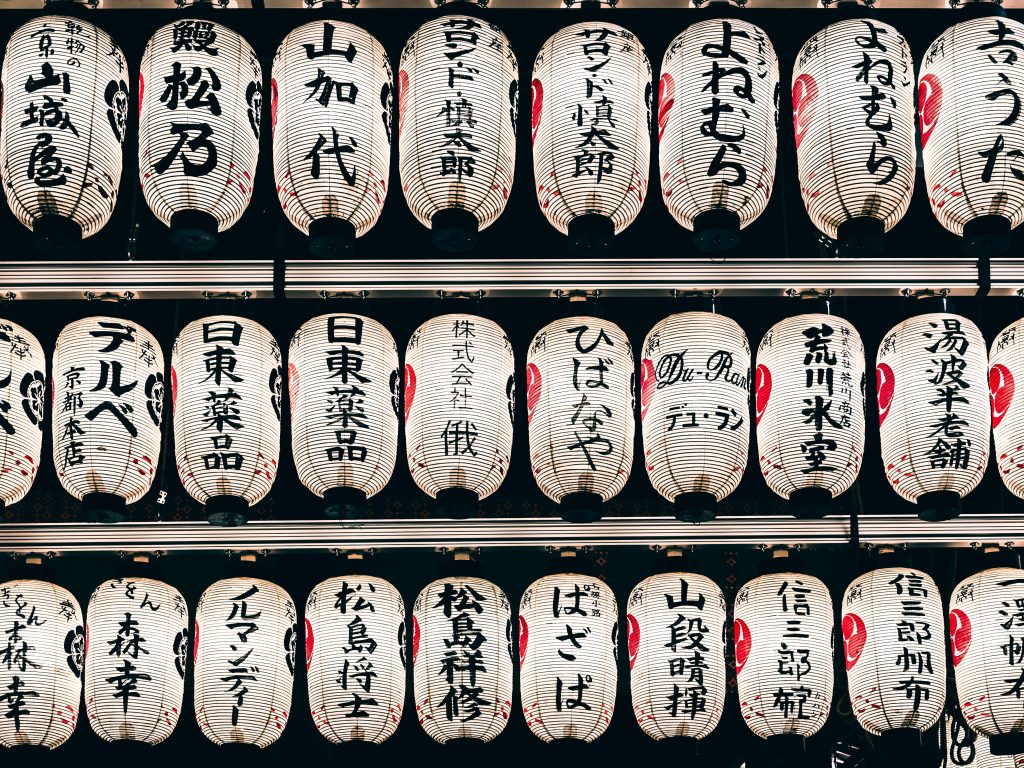 乾物の
京山城屋
鰻 松乃
山加代
サロン・ド慎太郎
銀座
サロン・ド慎太郎
よねむら
よねむら
吉うた
デルベ
京都本店
日東薬品
日東薬品
株式会社 俄
ひばなや
Du-Ran
デュ・ラン
株式会社 荒川商店
荒川氷室
湯波半老舗
ぎをん
森幸
ぎをん
森幸
イルマンディー
松島将士
松島祥修
ぱざぱ
山段晴揮
信三郎
信三郎帆布
一澤帆布